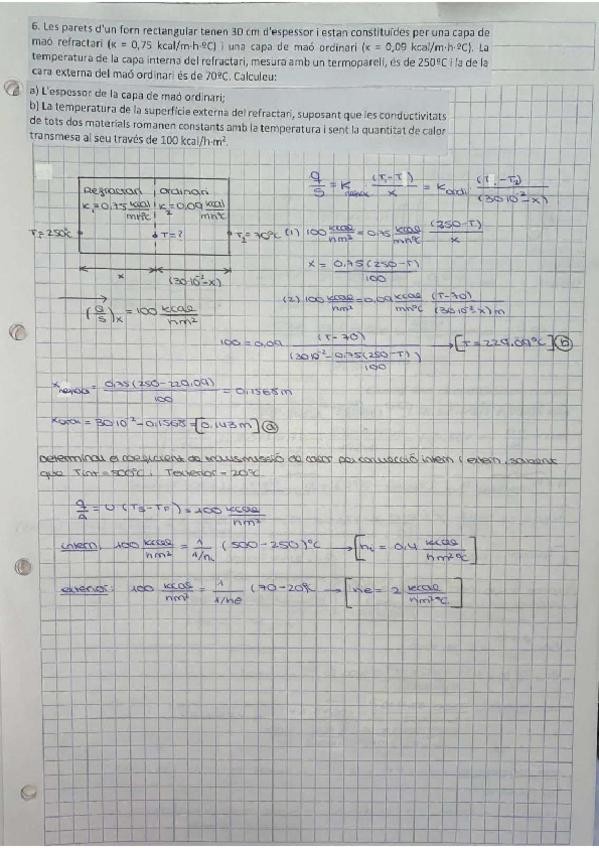 6. Les parets d'un forn rectangular tenen 30 cm d'espessor i estan constituïdes per una capa de
maó refractari (κ = 0,75 kcal/m·h·ºC) i una capa de maó ordinari (κ = 0,09 kcal/m·h·ºC). La
temperatura de la capa interna del refractari, mesura amb un termoparell, és de 250ºC i la de la
cara externa del maó ordinari és de 70ºC. Calculeu:
a) L'espessor de la capa de maó ordinari;
b) La temperatura de la superfície externa del refractari, suposant que les conductivitats
de tots dos materials romanen constants amb la temperatura i sent la quantitat de calor
transmesa al seu través de 100 kcal/h·m².
q/S = K (T₁-T)/x = K ordi. (T-T₂)/(30·10⁻²-x)
Refractari ordinari
K₁=0,75 kcal/mhºC K₂=0,09 kcal/mhºC
T₁=250ºC T=? T₂=70ºC
x (30·10⁻²-x)
(Q/S)ₓ = 100 kcal/hm²
(1) 100 kcal/hm² = 0,75 kcal/mhºC (250-T)/x
x = 0,75(250-T)/100
(2) 100 kcal/hm² = 0,09 kcal/mhºC (T-70)/(30·10⁻²-x)m
100 = 0,09 (T-70)/(30·10⁻² - 0,75(250-T)/100) → [T=229,09ºC] b
x = 0,75(250-229,09)/100 = 0,1568m
x ordi = 30·10⁻² - 0,1568 = [0,143m] a
Determinau el coeficient de transmissió de calor per convecció intern i extern, sabent
que Tint = 500ºC i Texterior = 20ºC
q/A = U (TB-TF) = 100 kcal/hm²
intern: 100 kcal/hm² = 1/(1/hi) (500-250)ºC → [hi = 0,4 kcal/hm²ºC]
exterior: 100 kcal/hm² = 1/(1/he) (70-20)ºC → [he = 2 kcal/hm²ºC]